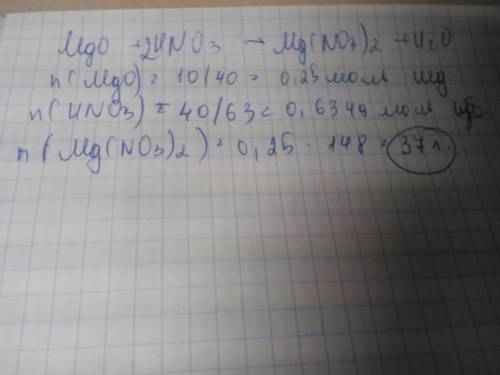 MgO + 2HNO3 → Mg(NO3)2 + H2O
n(MgO) = 10/40 = 0,25 моль
n(HNO3) = 40/63 = 0,6349 моль
n(Mg(NO3)2) = 0,25 · 148 = 37 г.